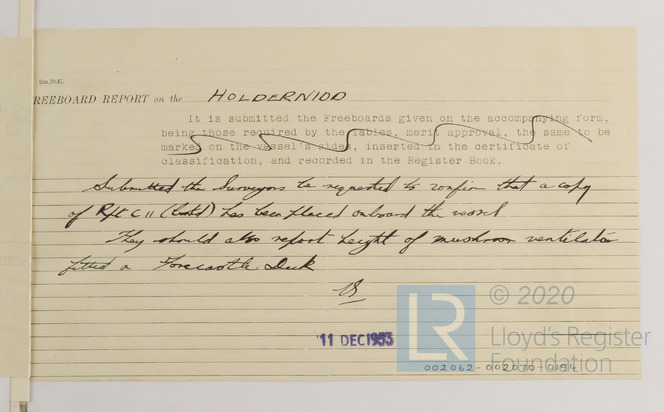 2m,10,47.
REEBOARD REPORT on the HOLDERNIDD
It is submitted the Freeboards given on the accompanying form,
being those required by the Tables, merit approval, the same to be
marked on the vessel's sides, inserted in the certificate of
classification, and recorded in the Register Book.
Submitted the Surveyors be requested to confirm that a copy
of Rpt C 11 ( ) has been placed onboard the vessel
They should also report height of mushroom ventilator
fitted on Forecastle Deck
11 DEC 1953
LR © 2020
Lloyd's Register
Foundation
002062-002070-0194